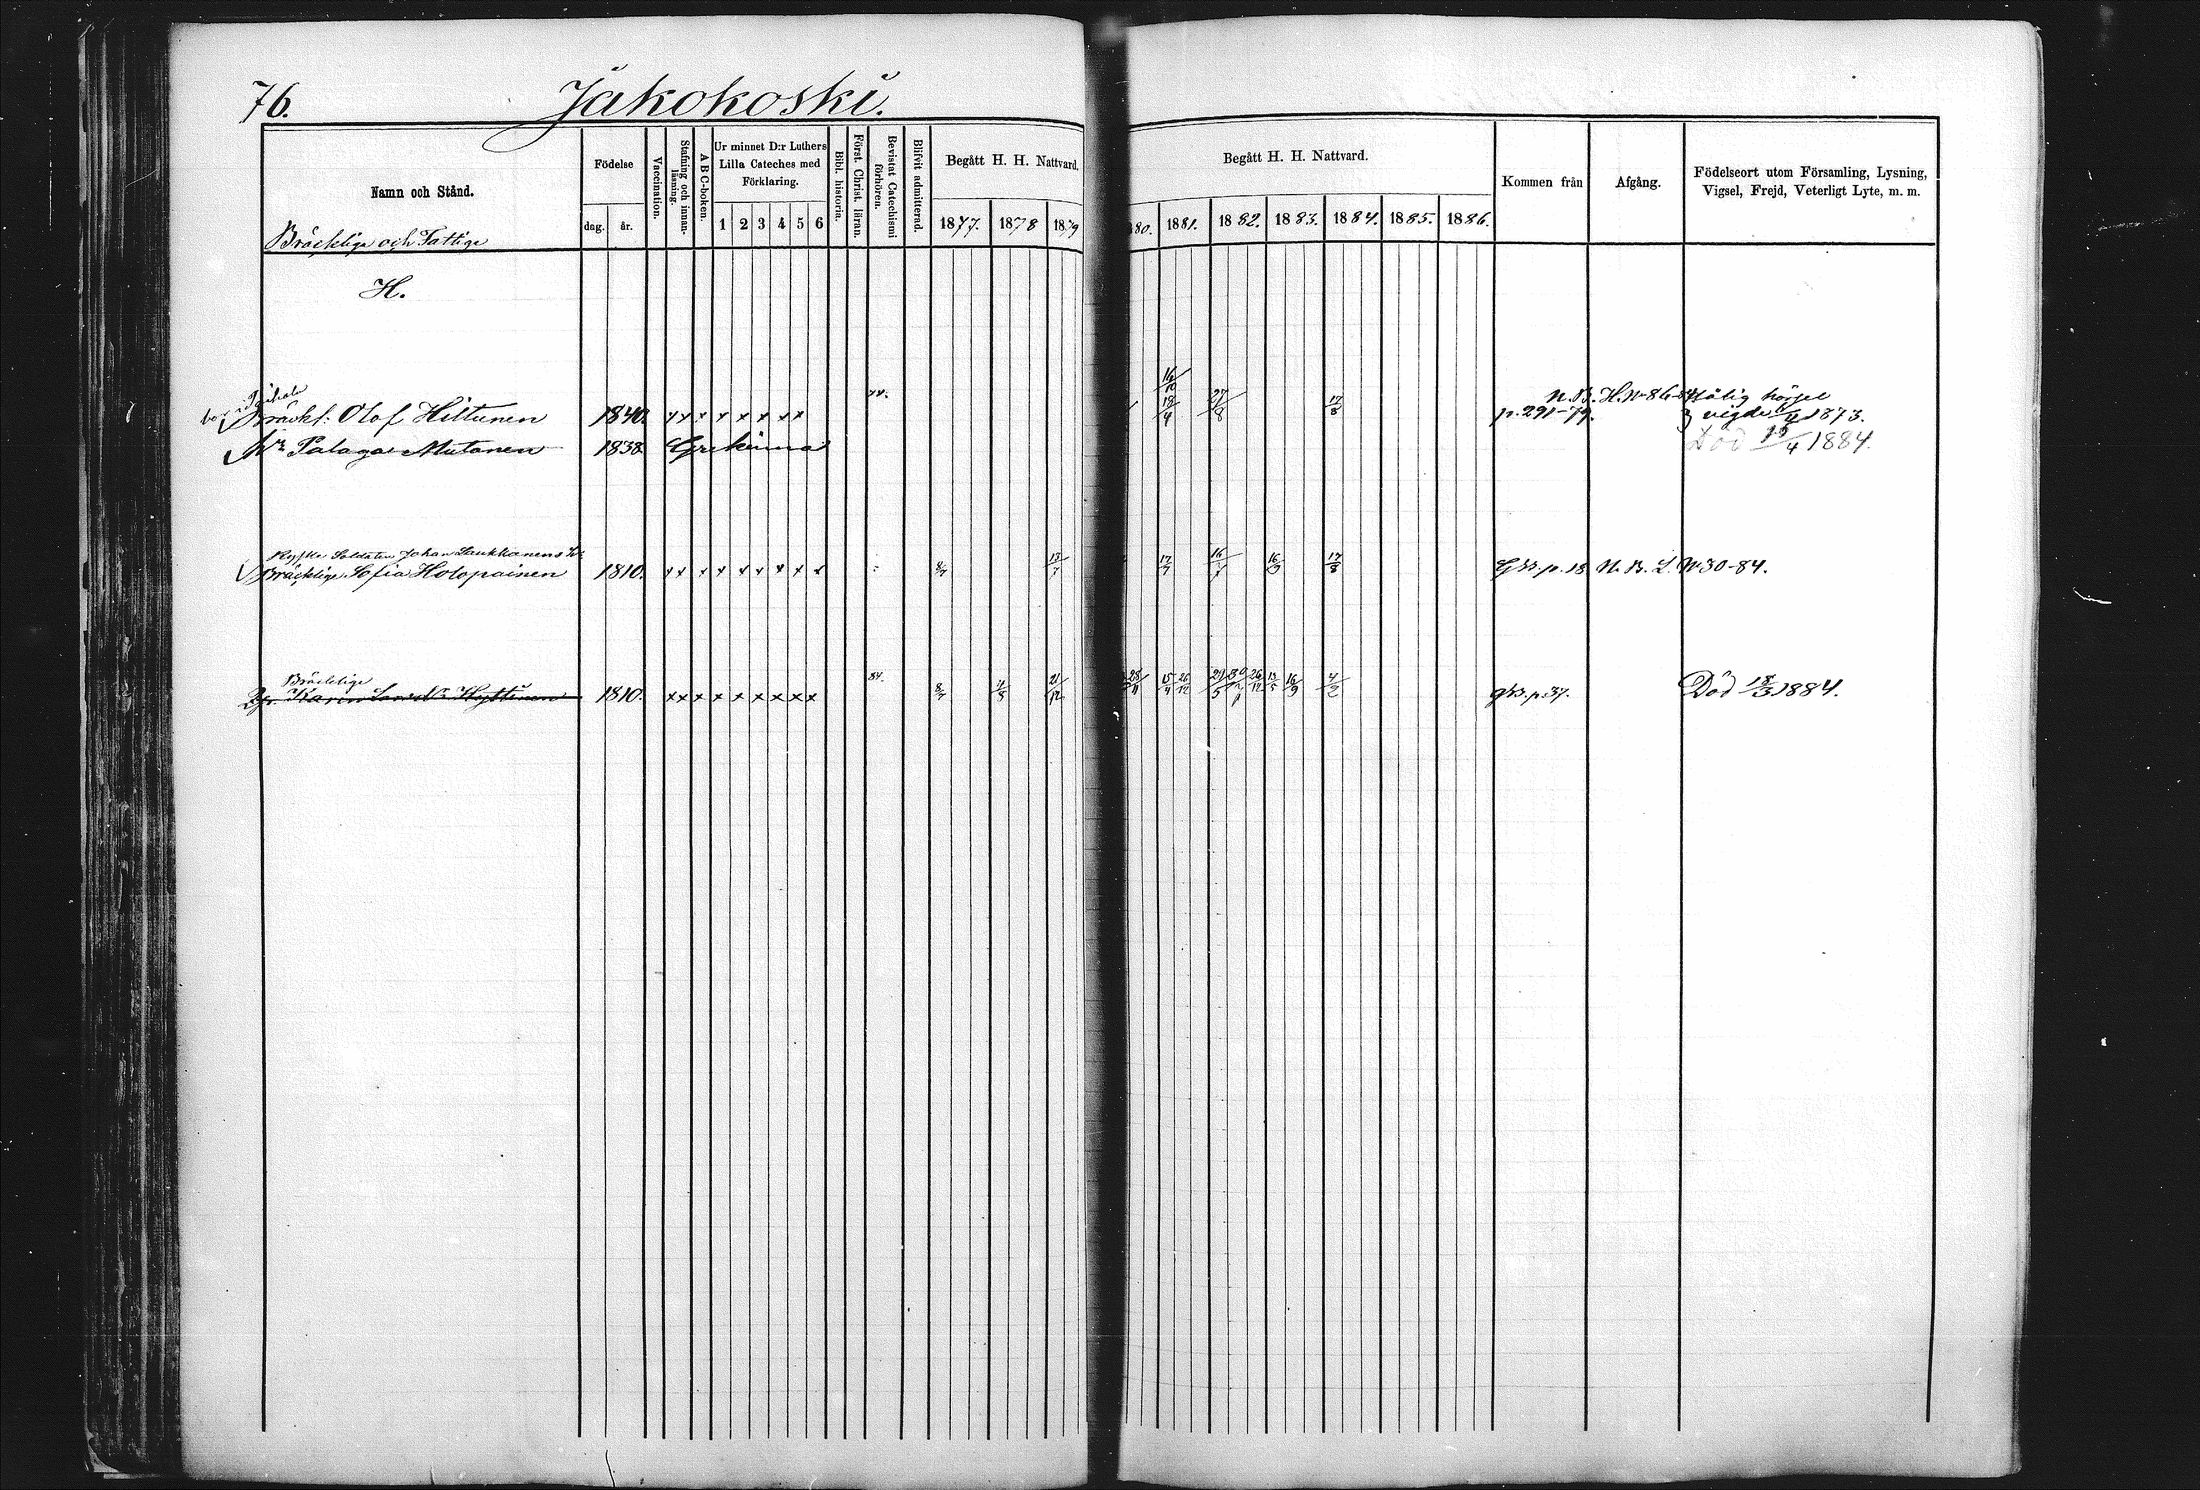 76. Jakokoski.
Namn och Stånd.
Bräcklige och Fattige
Födelse
dag. år.
Vaccination.
Stafning och innan-läsning.
A B C-boken.
Ur minnet D:r Luthers
Lilla Cateches med
Förklaring.
1 2 3 4 5 6
Bibl. historia.
Först. Christ. läran.
Bevistat Catechismi förhören.
Blifvit admitterad.
Begått H. H. Nattvard.
1877. 1878 1879
Begått H. H. Nattvard.
80. 1881. 1882. 1883. 1884. 1885. 1886.
Kommen från
Afgång.
Födelseort utom Församling, Lysning,
Vigsel, Frejd, Veterligt Lyte, m. m.
H.
Bräckl: Olof Hiltunen 1840. x x x x x x x x 16/10 18/4 27/8 17/8 p. 291-79. N. B. H. No 86-84
vigde 1873.
Palaga Mutanen 1838 Grekinna Död 15/4 1884.
Soldaten Johan Laukkanens
Bräcklige Sofia Holopainen 1810. x x x x x x x x x 8/7 13/7 17/7 16/7 16/9 17/8 Gbr. p. 18. N. B. L. No 30-84.
Bräcklige
Karin Hyttinen 1810. x x x x x x x x x 84. 8/7 21/12 28/11 15/4 26/12 29/5 26/12 13/5 16/9 4/2 gbr. p. 37. Död 18/3 1884.